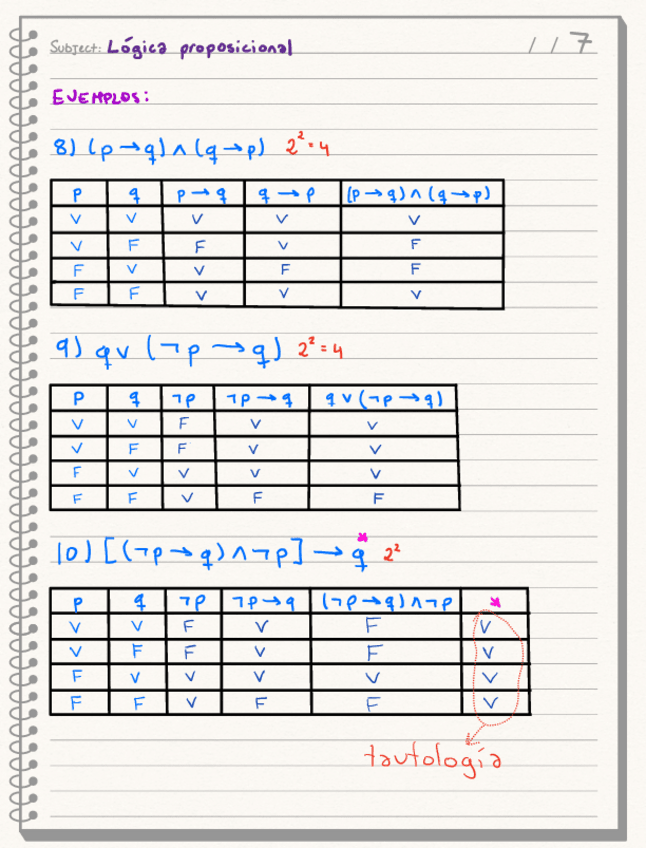 Subject: Lógica proposicional / / 7
EJEMPLOS:
8) (p → q) ∧ (q → p) 2² = 4
p q p → q q → p (p → q) ∧ (q → p)
V V V V V
V F F V F
F V V F F
F F V V V
9) q ∨ (¬p → q) 2² = 4
p q ¬p ¬p → q q ∨ (¬p → q)
V V F V V
V F F V V
F V V V V
F F V F F
10) [(¬p → q) ∧ ¬p] → q * 2²
p q ¬p ¬p → q (¬p → q) ∧ ¬p *
V V F V F V
V F F V F V
F V V V V V
F F V F F V
tautología